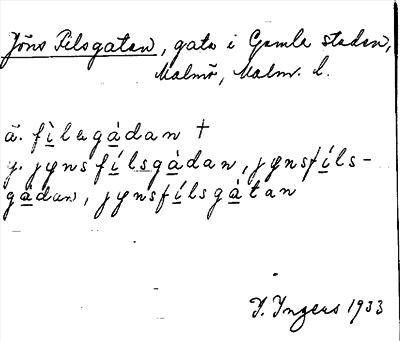 Jöns Filsgatan, gata i Gamla staden,
Malmö, Malm. l.
ä. fìlagàdan †
y. jφnsfílsgàdan, jφnsfíls-
gàdan, jφnsfílsgàtan
I. Ingers 1933